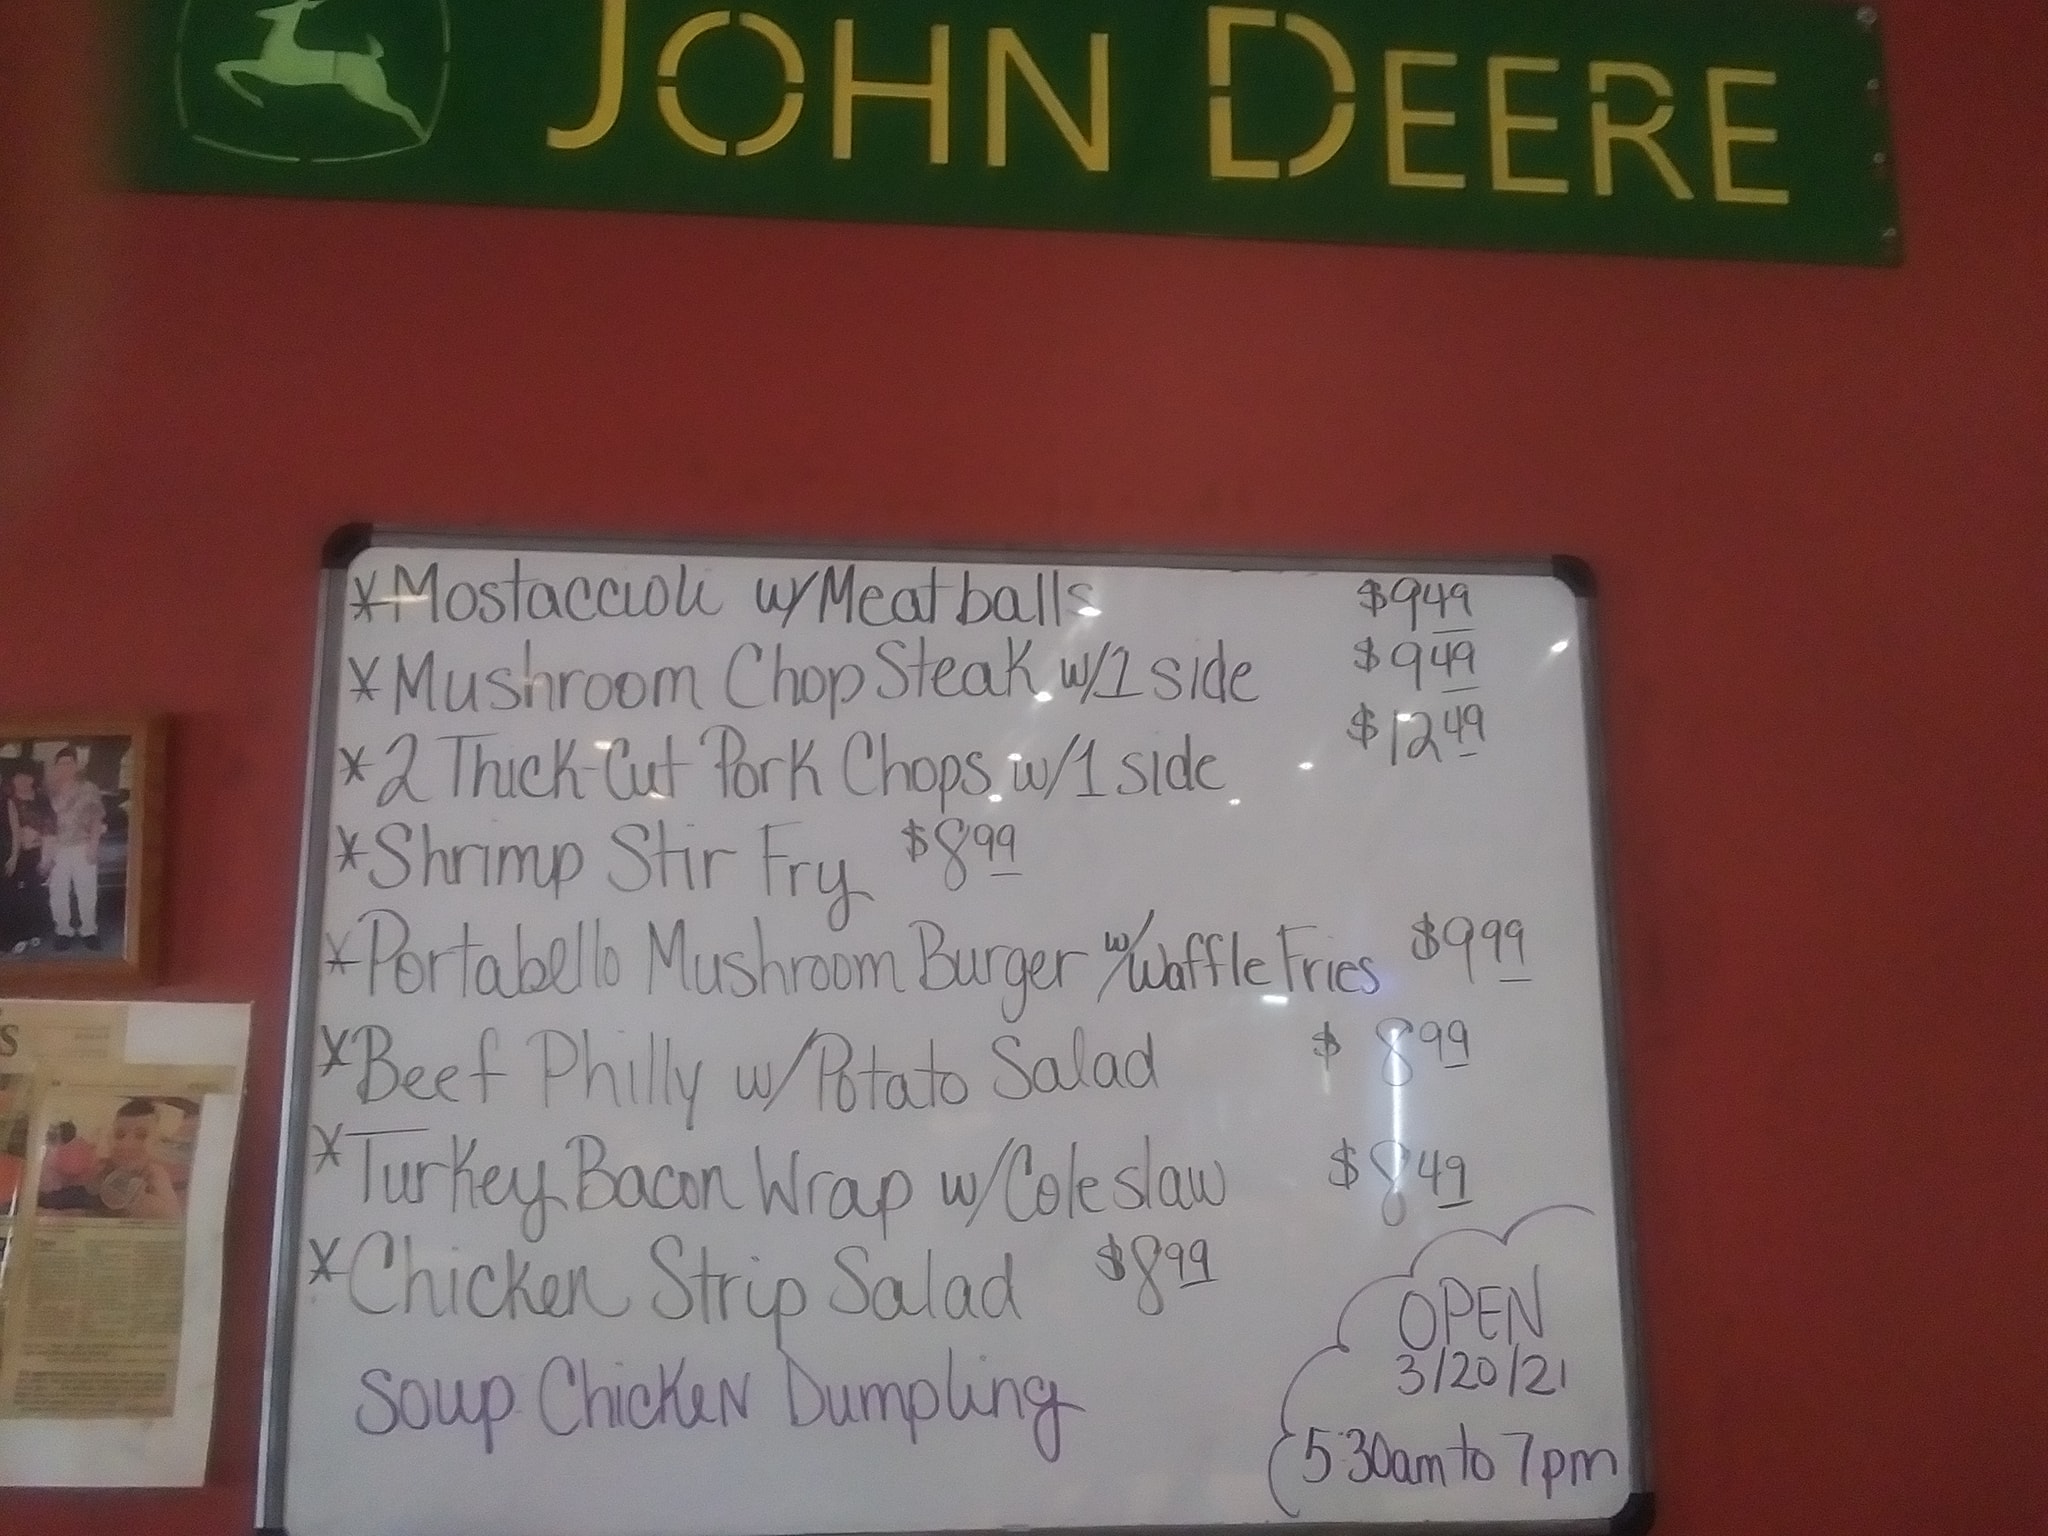 JOHN DEERE
*Mostaccioli w/Meatballs $9.49
*Mushroom Chop Steak w/1 side $9.49
*2 Thick-Cut Pork Chops w/1 side $12.49
*Shrimp Stir Fry $8.99
*Portabello Mushroom Burger w/Waffle Fries $9.99
*Beef Philly w/Potato Salad $8.99
*Turkey Bacon Wrap w/Coleslaw $8.49
*Chicken Strip Salad $8.99
Soup Chicken Dumpling
OPEN
3/20/21
5:30am to 7pm